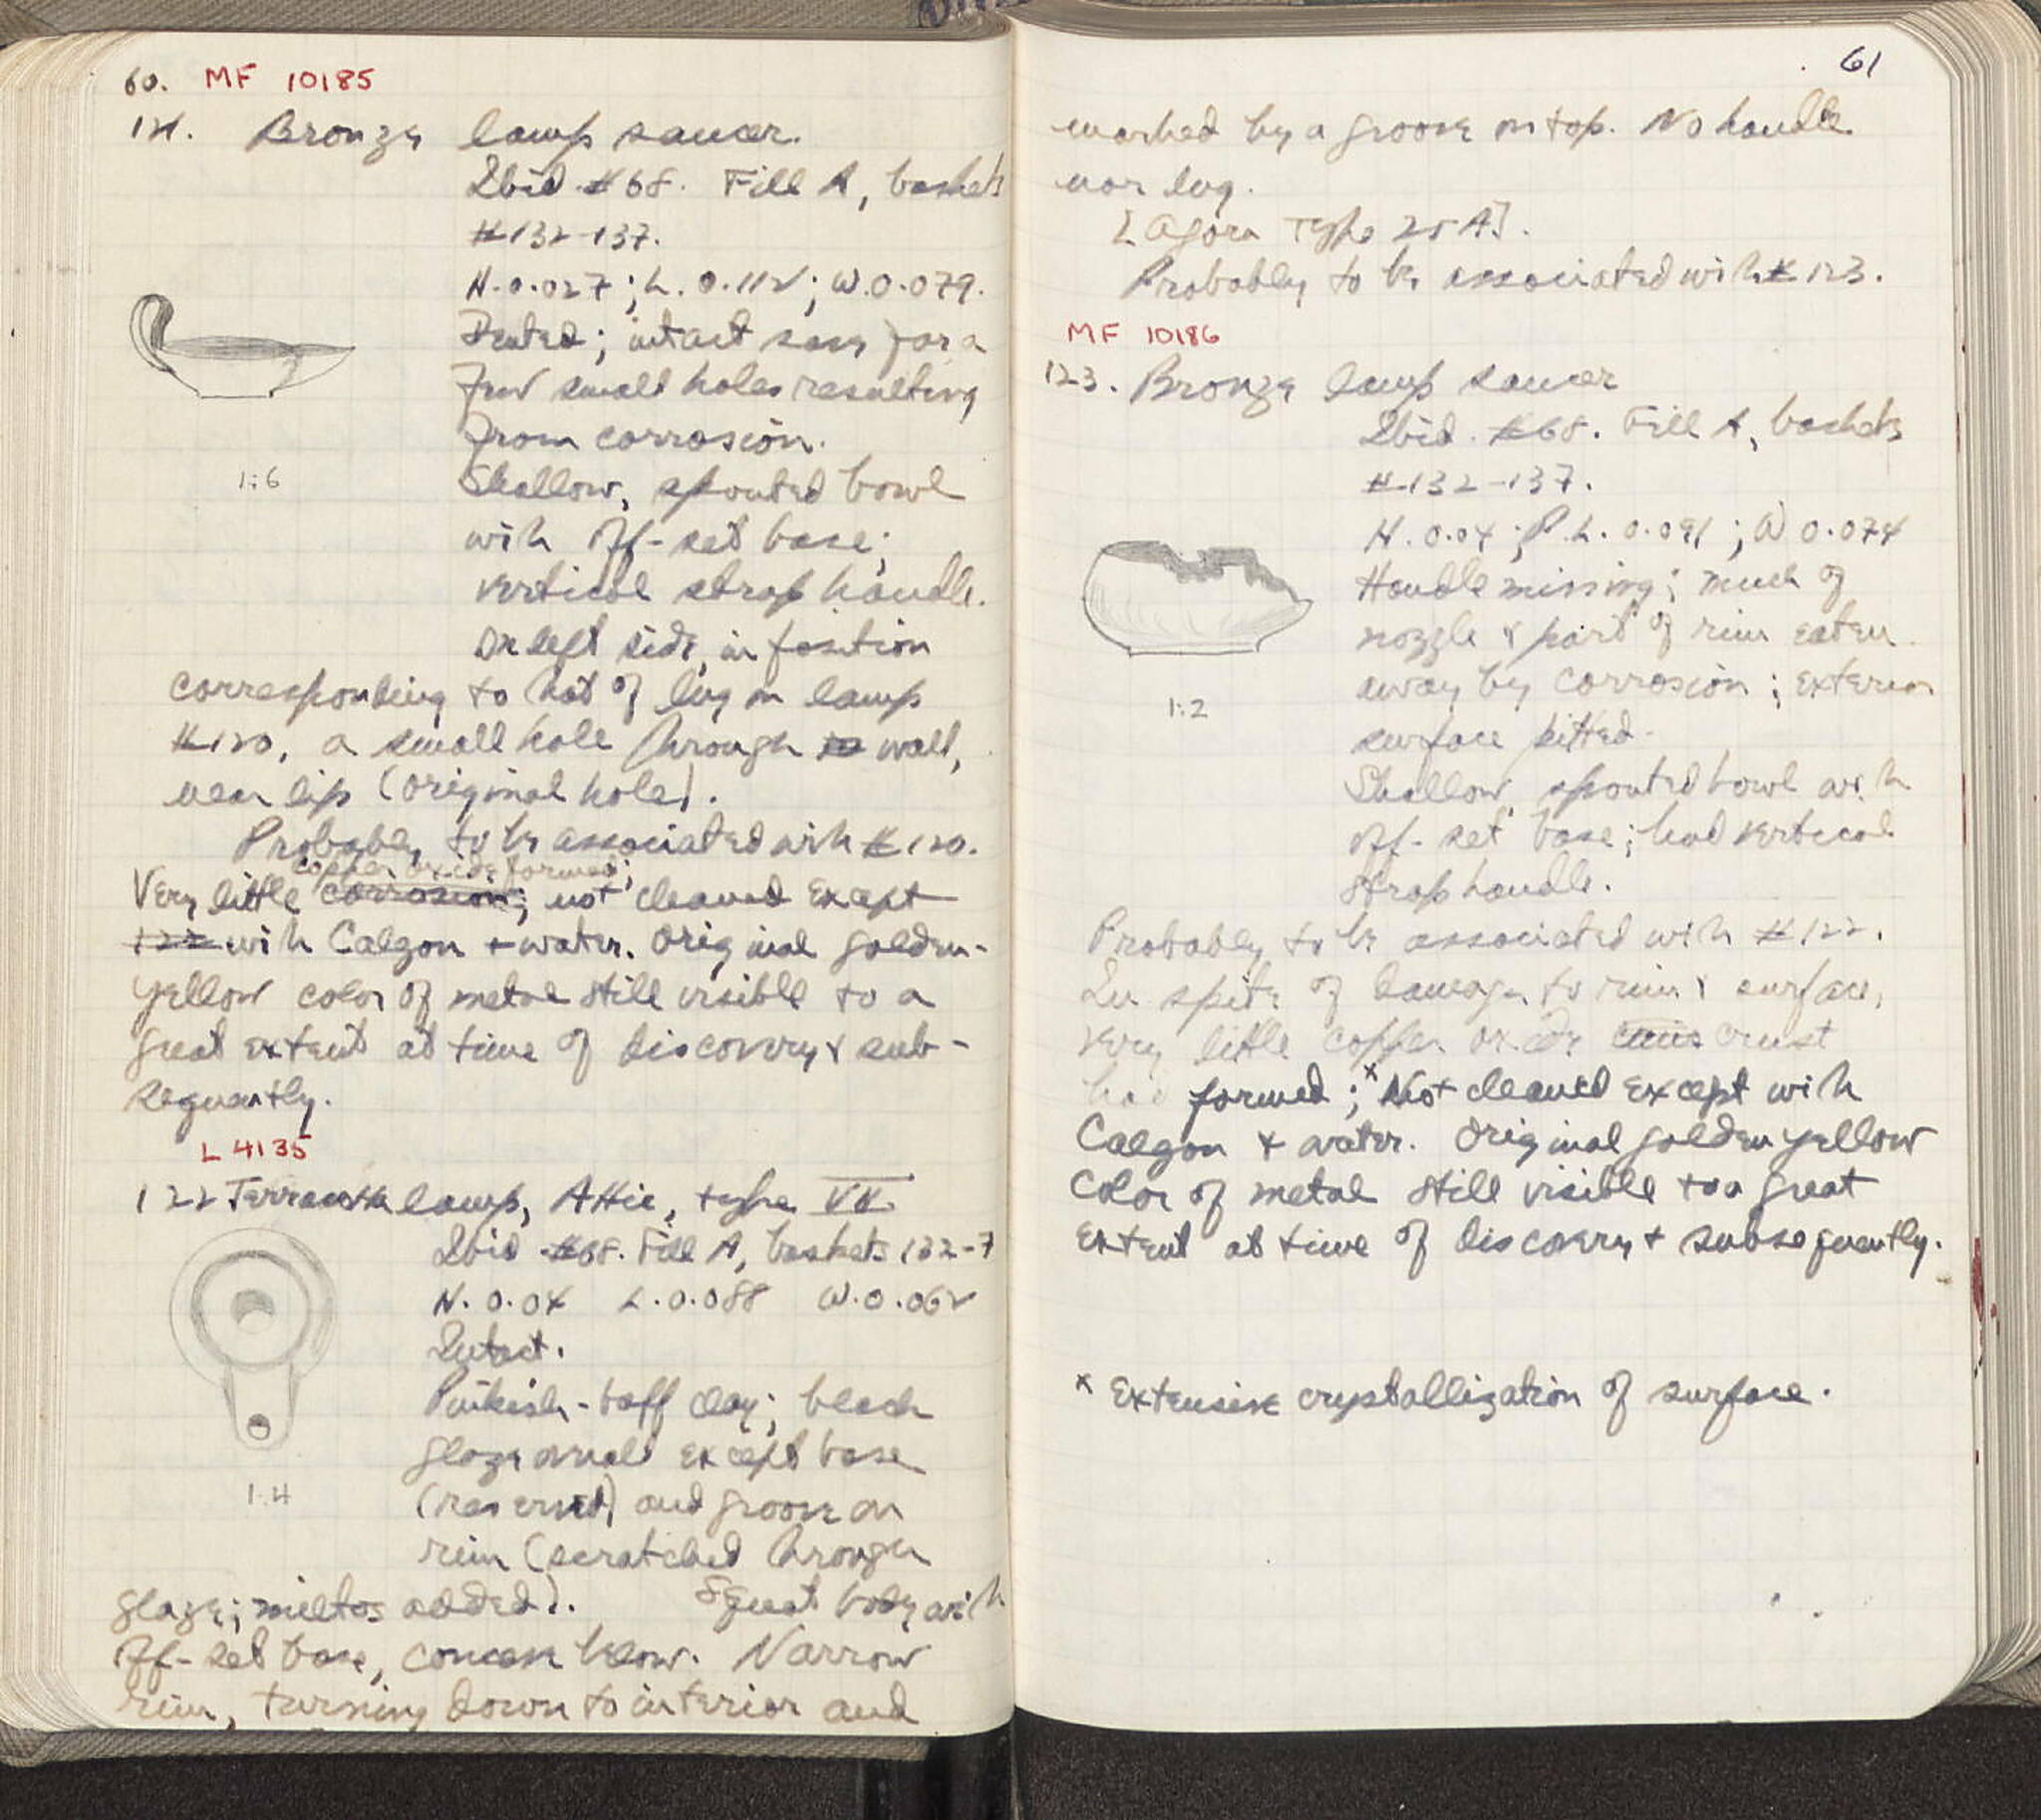 60. MF 10185
121. Bronze lamp saucer.
Ibid. #68. Fill A, baskets
#132-137.
H. 0.027; L. 0.112; W. 0.079.
Dented; intact save for a
few small holes resulting
from corrosion.
1:6
Shallow, spouted bowl
with off-set base;
vertical strap handle.
On left side, in position
corresponding to that of lug on lamp
#120, a small hole through wall,
near lip (original hole).
Probably to be associated with #120.
copper oxide formed;
Very little corrosion; not cleaned except
122 with Calgon + water. Original golden-
yellow color of metal still visible to a
great extent at time of discovery & sub-
sequently.
L 4135
122 Terracotta lamp, Attic, type VII.
Ibid #68. Fill A, baskets 132-7
H. 0.04 L. 0.088 W. 0.062
Intact.
Pinkish-buff clay; black
glaze overall except base
1:4
(reserved) and groove on
rim (scratched through
glaze; miltos added). Squat body with
off-set base, concave below. Narrow
rim, turning down to interior and
61
marked by a groove on top. No handle
nor lug.
[Agora Type 25 A].
Probably to be associated with #123.
MF 10186
123. Bronze lamp saucer
Ibid. #68. Fill A, baskets
#132-137.
H. 0.04; P.L. 0.091; W 0.074
Handle missing; much of
nozzle & part of rim eaten
away by corrosion; exterior
1:2
surface pitted.
Shallow spouted bowl with
off-set base; had vertical
strap handle.
Probably to be associated with #122.
In spite of damage to rim & surface,
very little copper oxide crust
had formed;ˣ Not cleaned except with
Calgon + water. Original golden yellow
color of metal still visible to a great
extent at time of discovery + subsequently.
x Extensive crystallization of surface.